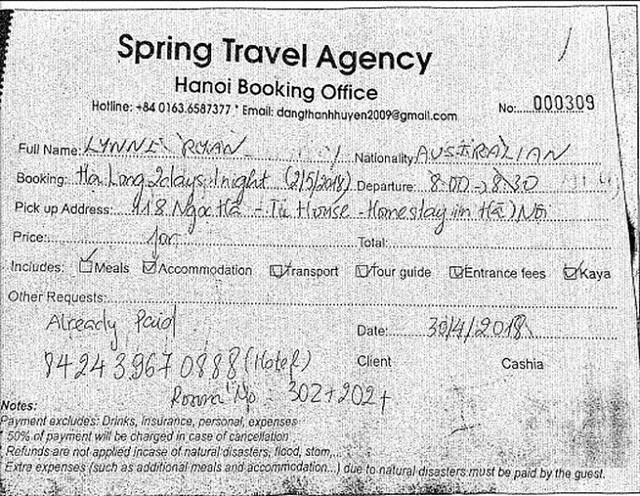 Spring Travel Agency
Hanoi Booking Office
Hotline: +84 0163.6587377 * Email: dangthanhhuyen2009@gmail.com
No: 000309
Full Name: LYNNE RYAN Nationality AUSTRALIAN
Booking: Ha Long 2days 1night (2/5/2018) Departure: 8:00 - 8:30
Pick up Address: 118 Ngọc Hà - Tu House - Homestay in Hà Nội
Price: for Total:
Includes: Meals Accommodation Transport Tour guide Entrance fees Kaya
Other Requests:
Already Paid
Date: 30/4/2018
84243967 0888 (Hotel)
Client Cashia
Room No - 302 + 202 +
Notes:
Payment excludes: Drinks, insurance, personal, expenses
50% of payment will be charged in case of cancellation
Refunds are not applied incase of natural disasters, flood, stom,...
Extra expenses (such as additional meals and accommodation...) due to natural disasters must be paid by the guest.